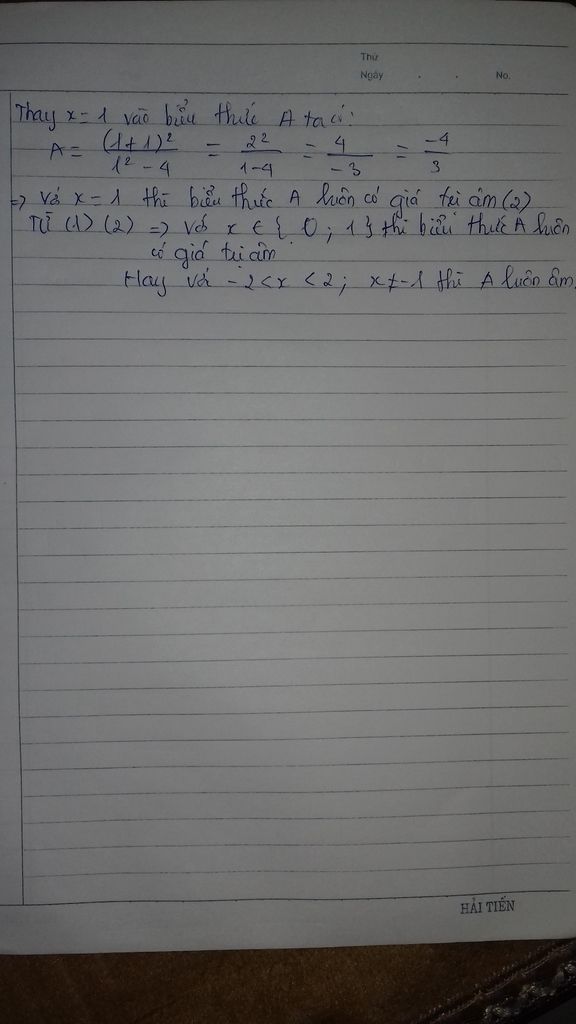 Thứ
Ngày . . No.
Thay x = 1 vào biểu thức A ta có:
A = (1+1)² / 1² - 4 = 2² / 1-4 = 4 / -3 = -4 / 3
=> Với x = 1 thì biểu thức A luôn có giá trị âm (2)
Từ (1) (2) => Với x ∈ { 0 ; 1 } thì biểu thức A luôn
có giá trị âm
Hay với -2 < x < 2 ; x ≠ -1 thì A luôn âm.
HẢI TIẾN